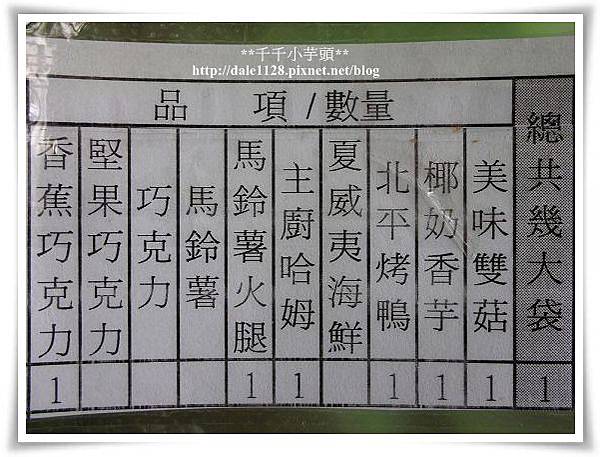 **千千小芋頭**
http://dale1128.pixnet.net/blog
品 項 /數量
總共幾大袋
美味雙菇
椰奶香芋
北平烤鴨
夏威夷海鮮
主廚哈姆
馬鈴薯火腿
馬鈴薯
巧克力
堅果巧克力
香蕉巧克力
1 1 1 1 1 1 1